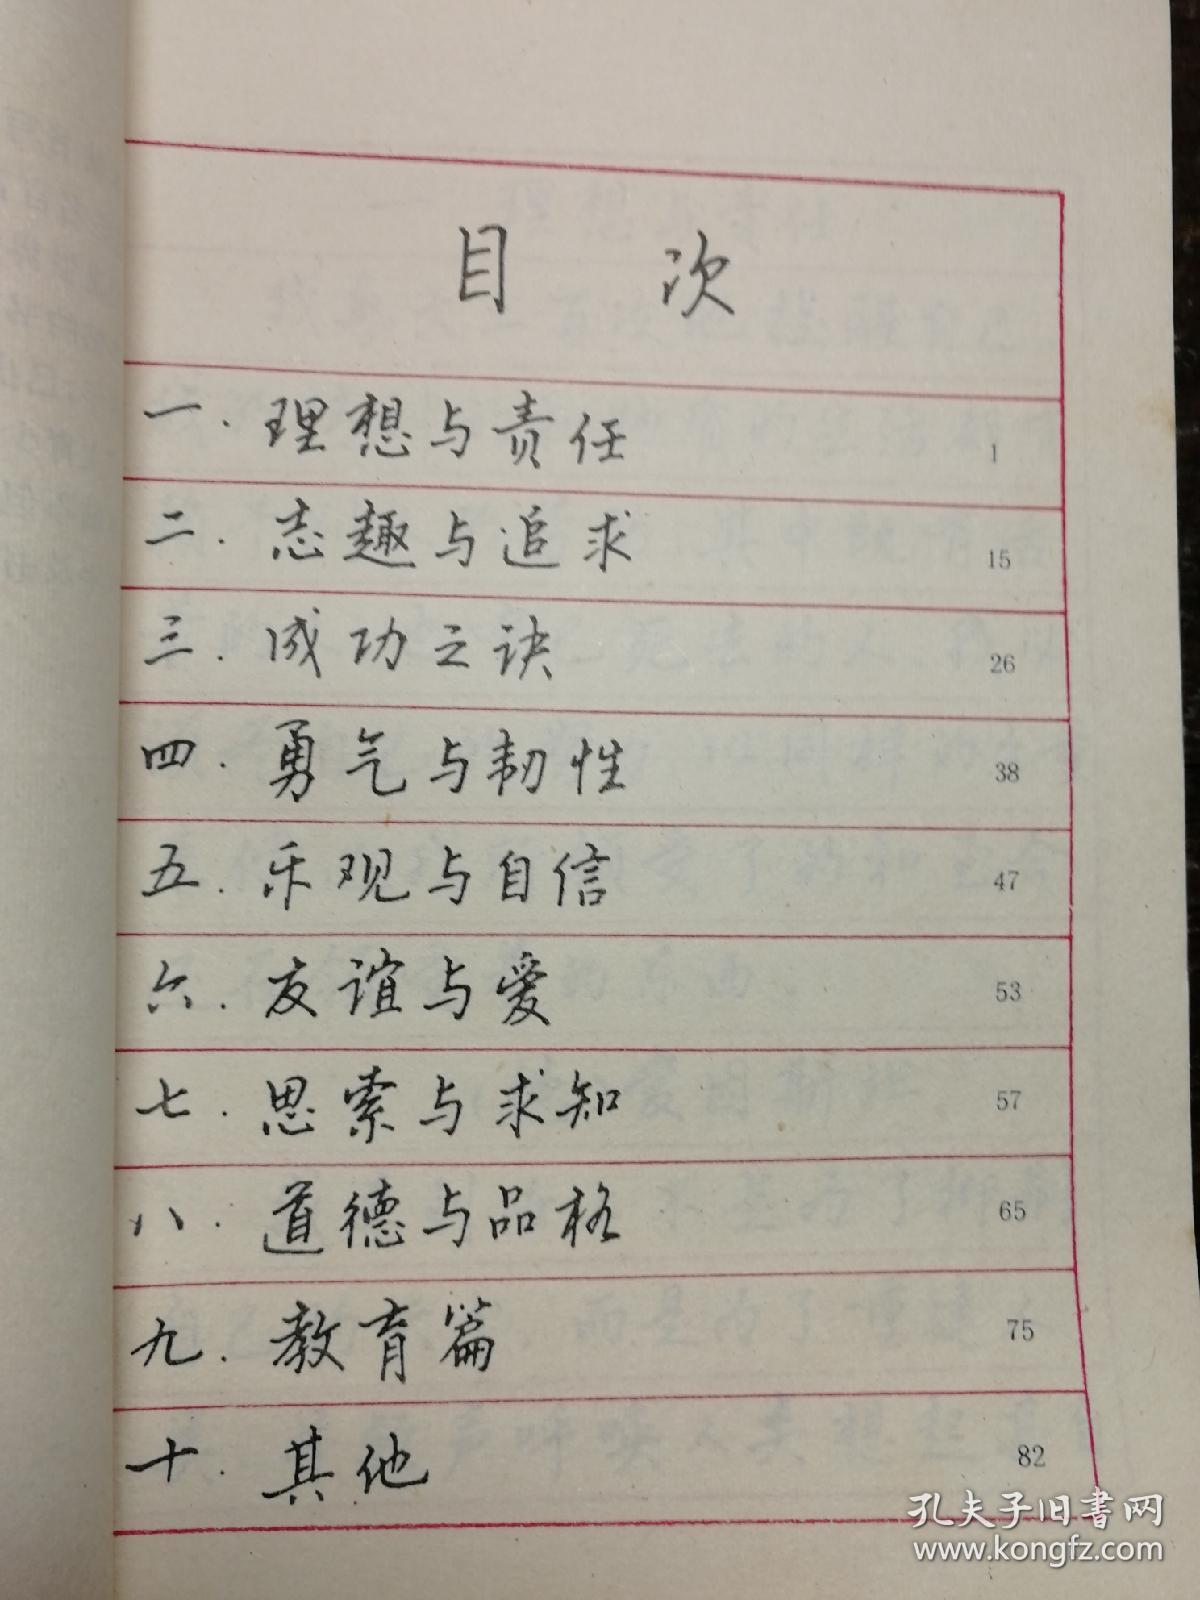 目 次
一. 理想与责任 1
二. 志趣与追求 15
三. 成功之诀 26
四. 勇气与韧性 38
五. 乐观与自信 47
六. 友谊与爱 53
七. 思索与求知 57
八. 道德与品格 65
九. 教育篇 75
十. 其他 82
孔夫子旧书网
www.kongfz.com